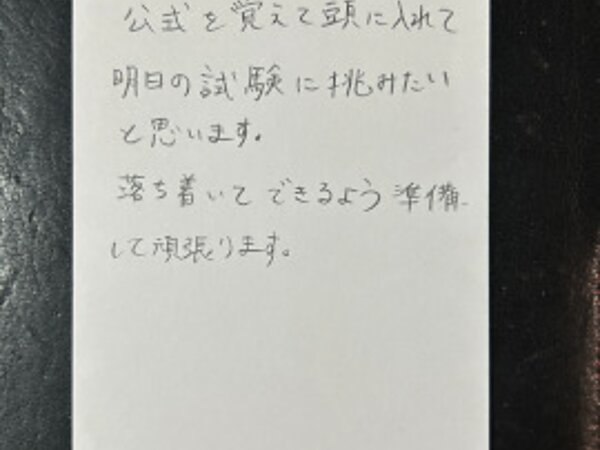 公式を覚えて頭に入れて
明日の試験に挑みたい
と思います。
落ち着いてできるよう準備
して頑張ります。